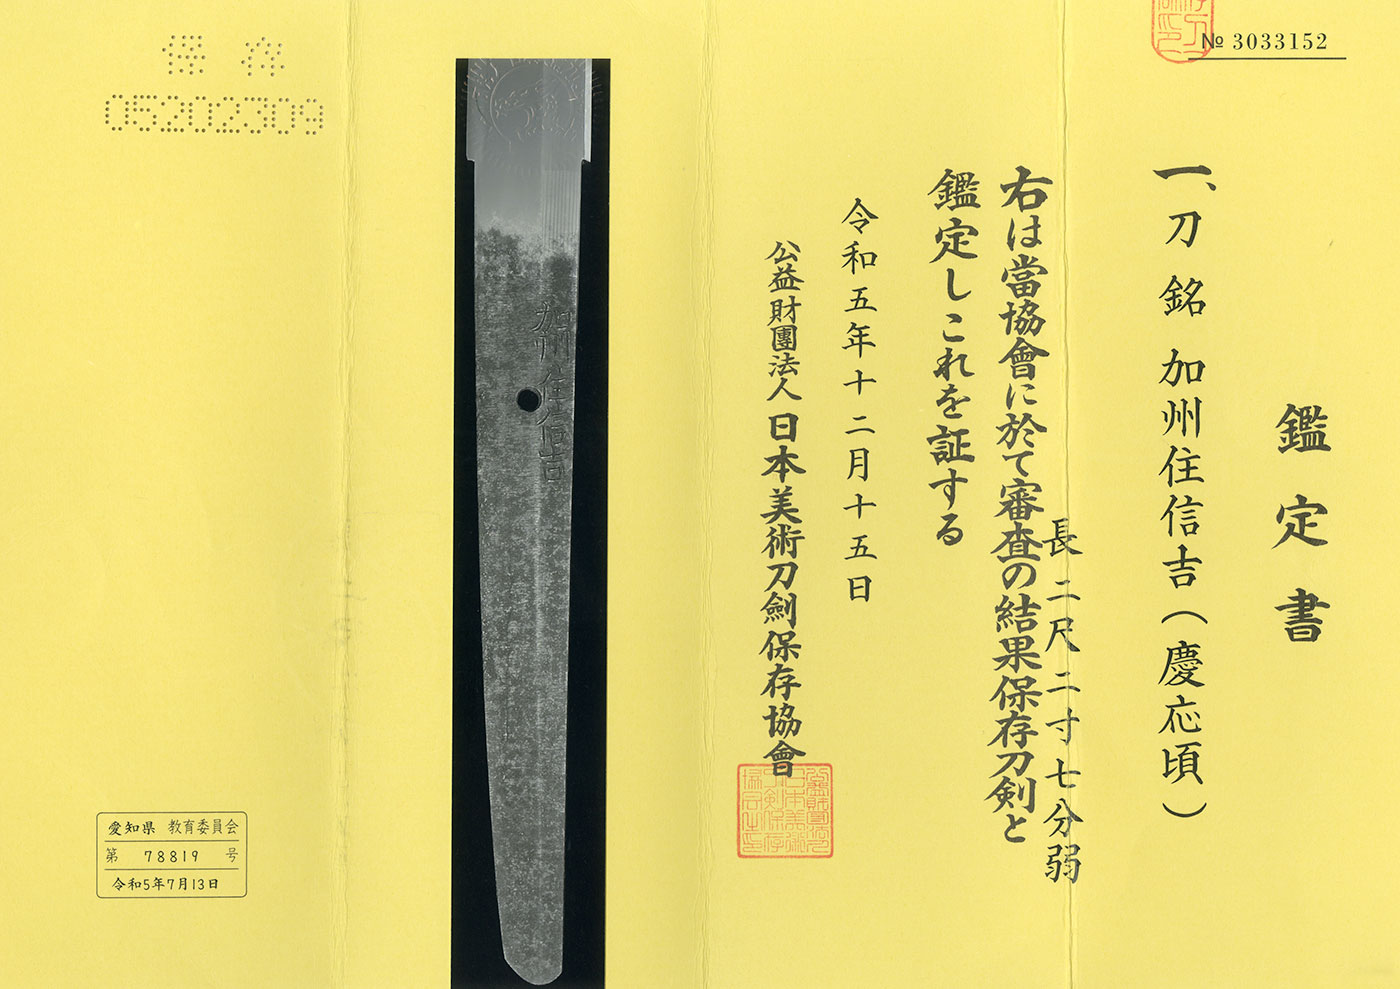 № 3033152
鑑定書
一、刀 銘 加州住信吉(慶応頃)
長 二尺二寸七分弱
右は當協會に於て審査の結果保存刀剣と
鑑定しこれを証する
令和五年十二月十五日
公益財團法人 日本美術刀劍保存協會
加州住信吉
保存
05202309
愛知県 教育委員会
第 78819 号
令和5年7月13日